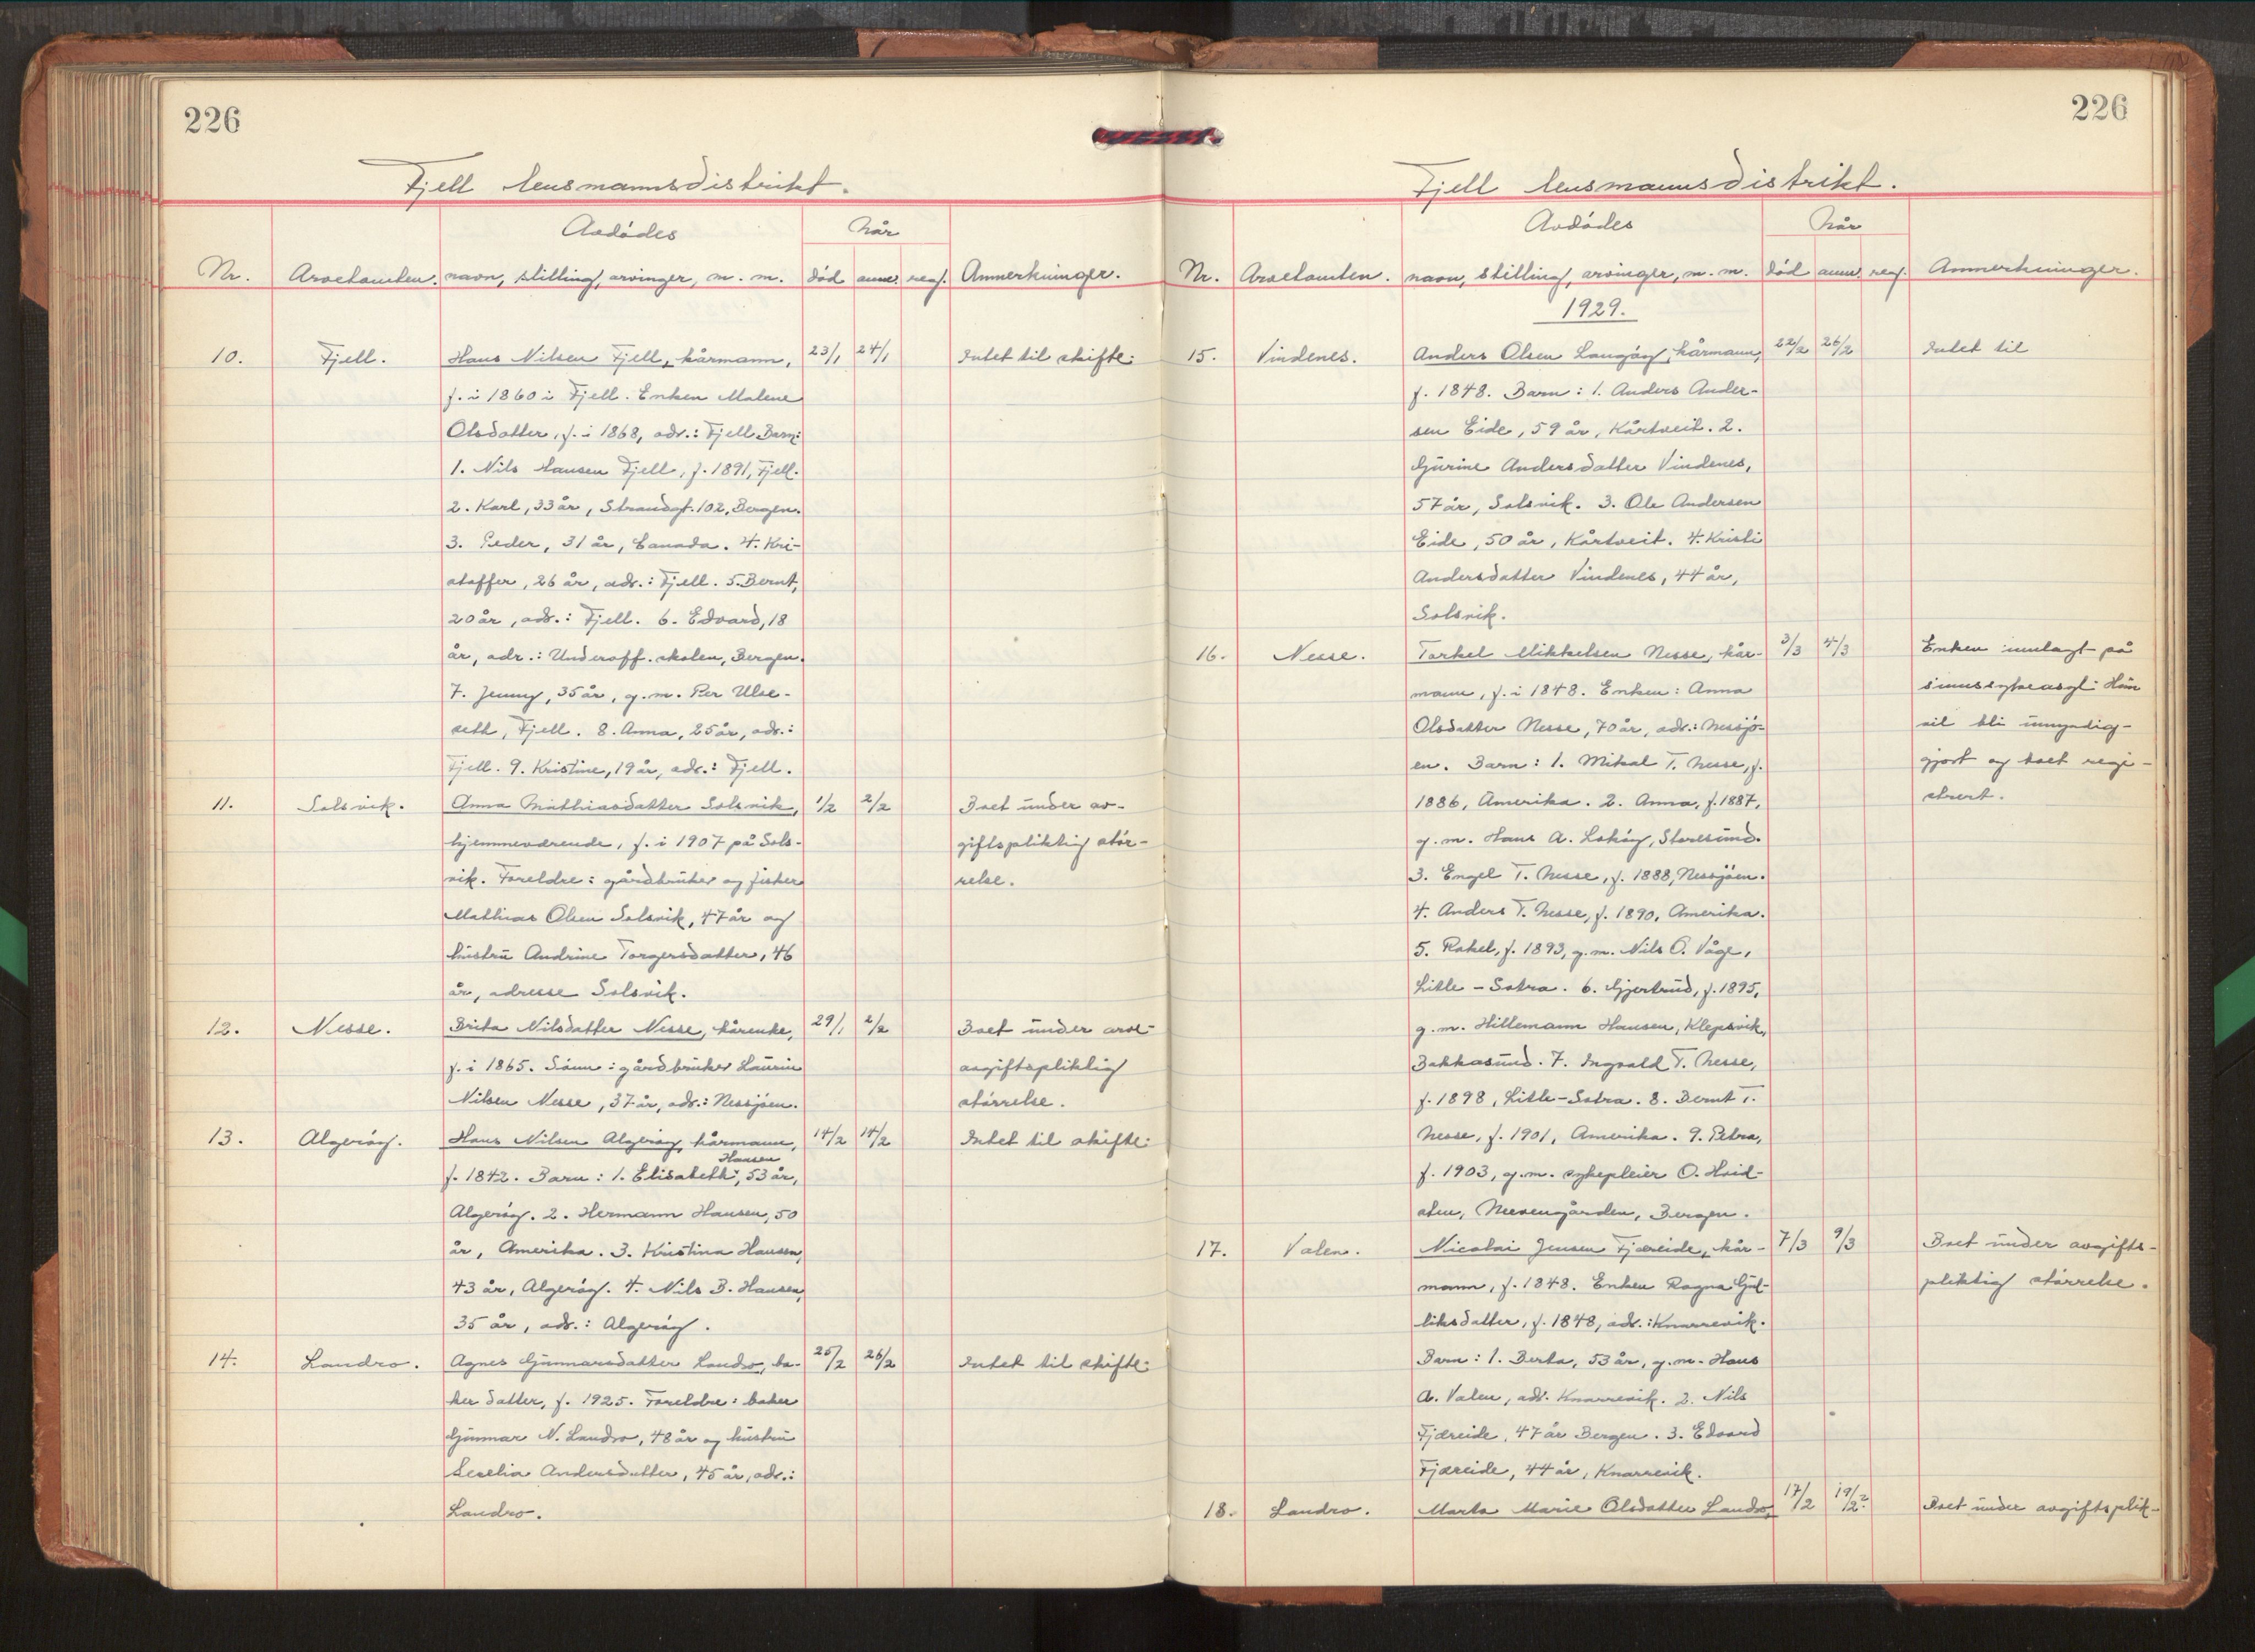 226
Fjell lensmannsdistrikt.
Avdødes
Når
Nr. Arvetomten. navn, stilling, arvinger, m. m. død anm. reg. Anmerkninger.
10. Fjell. Hans Nilsen Fjell, kårmann, 23/1 24/1 Intet til skifte.
f. i 1860 i Fjell. Enken Malene
Olsdatter, f. i 1868, adr.: Fjell. Barn:
1. Nils Hansen Fjell, f. 1891, Fjell.
2. Karl, 33 år, Strandgt. 102, Bergen.
3. Peder, 31 år, Canada. 4. Kri-
stoffer, 26 år, adr.: Fjell. 5. Bernt,
20 år, adr.: Fjell. 6. Edvard, 18
år, adr.: Underoff. skolen, Bergen.
7. Jenny, 35 år, g. m. Per Ulve-
seth, Fjell. 8. Anna, 25 år, adr.:
Fjell. 9. Kristine, 19 år, adr.: Fjell.
11. Solsvik. Anna Mathiasdatter Solsvik, 1/2 2/2 Boet under av-
hjemmeværende, f. i 1907 på Sols- giftspliktig stør-
vik. Foreldre: gårdbruker og fisker relse.
Mathias Olsen Solsvik, 47 år og
hustru Andrine Torgersdatter, 46
år, adresse Solsvik.
12. Nesse. Brita Nilsdatter Nesse, kårenke, 29/1 2/2 Boet under arve-
f. i 1865. Sønn: gårdbruker Laurin avgiftspliktig
Nilsen Nesse, 37 år, adr.: Nessjøen. størrelse.
13. Algerøy. Hans Nilsen Algerøy, kårmann, 14/2 14/2 Intet til skifte.
Hansen
f. 1842. Barn: 1. Elisabeth, 53 år,
Algerøy. 2. Hermann Hansen, 50
år, Amerika. 3. Kristina Hansen,
43 år, Algerøy. 4. Nils B. Hansen,
35 år, adr.: Algerøy.
14. Landro. Agnes Gunnarsdatter Landro, ba- 25/2 26/2 Intet til skifte.
ker datter, f. 1925. Foreldre: baker
Gunnar N. Landro, 48 år og hustru
Secelia Andersdatter, 45 år, adr.:
Landro.
226
Fjell lensmannsdistrikt.
Avdødes
Når
Nr. Arvetomten. navn, stilling, arvinger, m. m. død anm. reg. Anmerkninger.
1929.
15. Vindenes. Anders Olsen Langøy, kårmann, 22/2 26/2 Intet til
f. 1848. Barn: 1. Anders Ander-
sen Eide, 59 år, Kårtveit. 2.
Gurine Andersdatter Vindenes,
57 år, Solsvik. 3. Ole Andersen
Eide, 50 år, Kårtveit. 4. Kristi
Andersdatter Vindenes, 44 år,
Solsvik.
16. Nesse. Torkel Mikkelsen Nesse, kår- 3/3 4/3 Enken innlagt på
mann, f. i 1848. Enken: Anna sinnssykeasyl. Hun
Olsdatter Nesse, 70 år, adr.: Nessjø- vil bli umyndig-
en. Barn: 1. Mikal T. Nesse, f. gjort og boet regi-
1886, Amerika. 2. Anna, f. 1887, strert.
g. m. Hans A. Lokøy, Steresund.
3. Engel T. Nesse, f. 1888, Nessjøen.
4. Anders T. Nesse, f. 1890, Amerika.
5. Rakel, f. 1893, g. m. Nils O. Våge,
Litle-Sotra. 6. Gjertrud, f. 1895,
g. m. Hillemann Hansen, Klepsvik,
Bakkasund. 7. Ingvald T. Nesse,
f. 1898, Litle-Sotra. 8. Bernt T.
Nesse, f. 1901, Amerika. 9. Petra,
f. 1903, g. m. sykepleier O. Hvid-
sten, Neevengården, Bergen.
17. Valen. Nicolai Jensen Fjæreide, kår- 7/3 9/3 Boet under avgifts-
mann, f. 1848. Enken Ragna Gul- pliktig størrelse.
liksdatter, f. 1848, adr.: Knarrevik.
Barn: 1. Berta, 53 år, g. m. Hans
A. Valen, adr. Knarrevik. 2. Nils
Fjæreide, 47 år Bergen. 3. Edvard
Fjæreide, 44 år, Knarrevik.
18. Landro. Marta Marie Olsdatter Landro, 17/2 19/2? Boet under avgiftsplik-